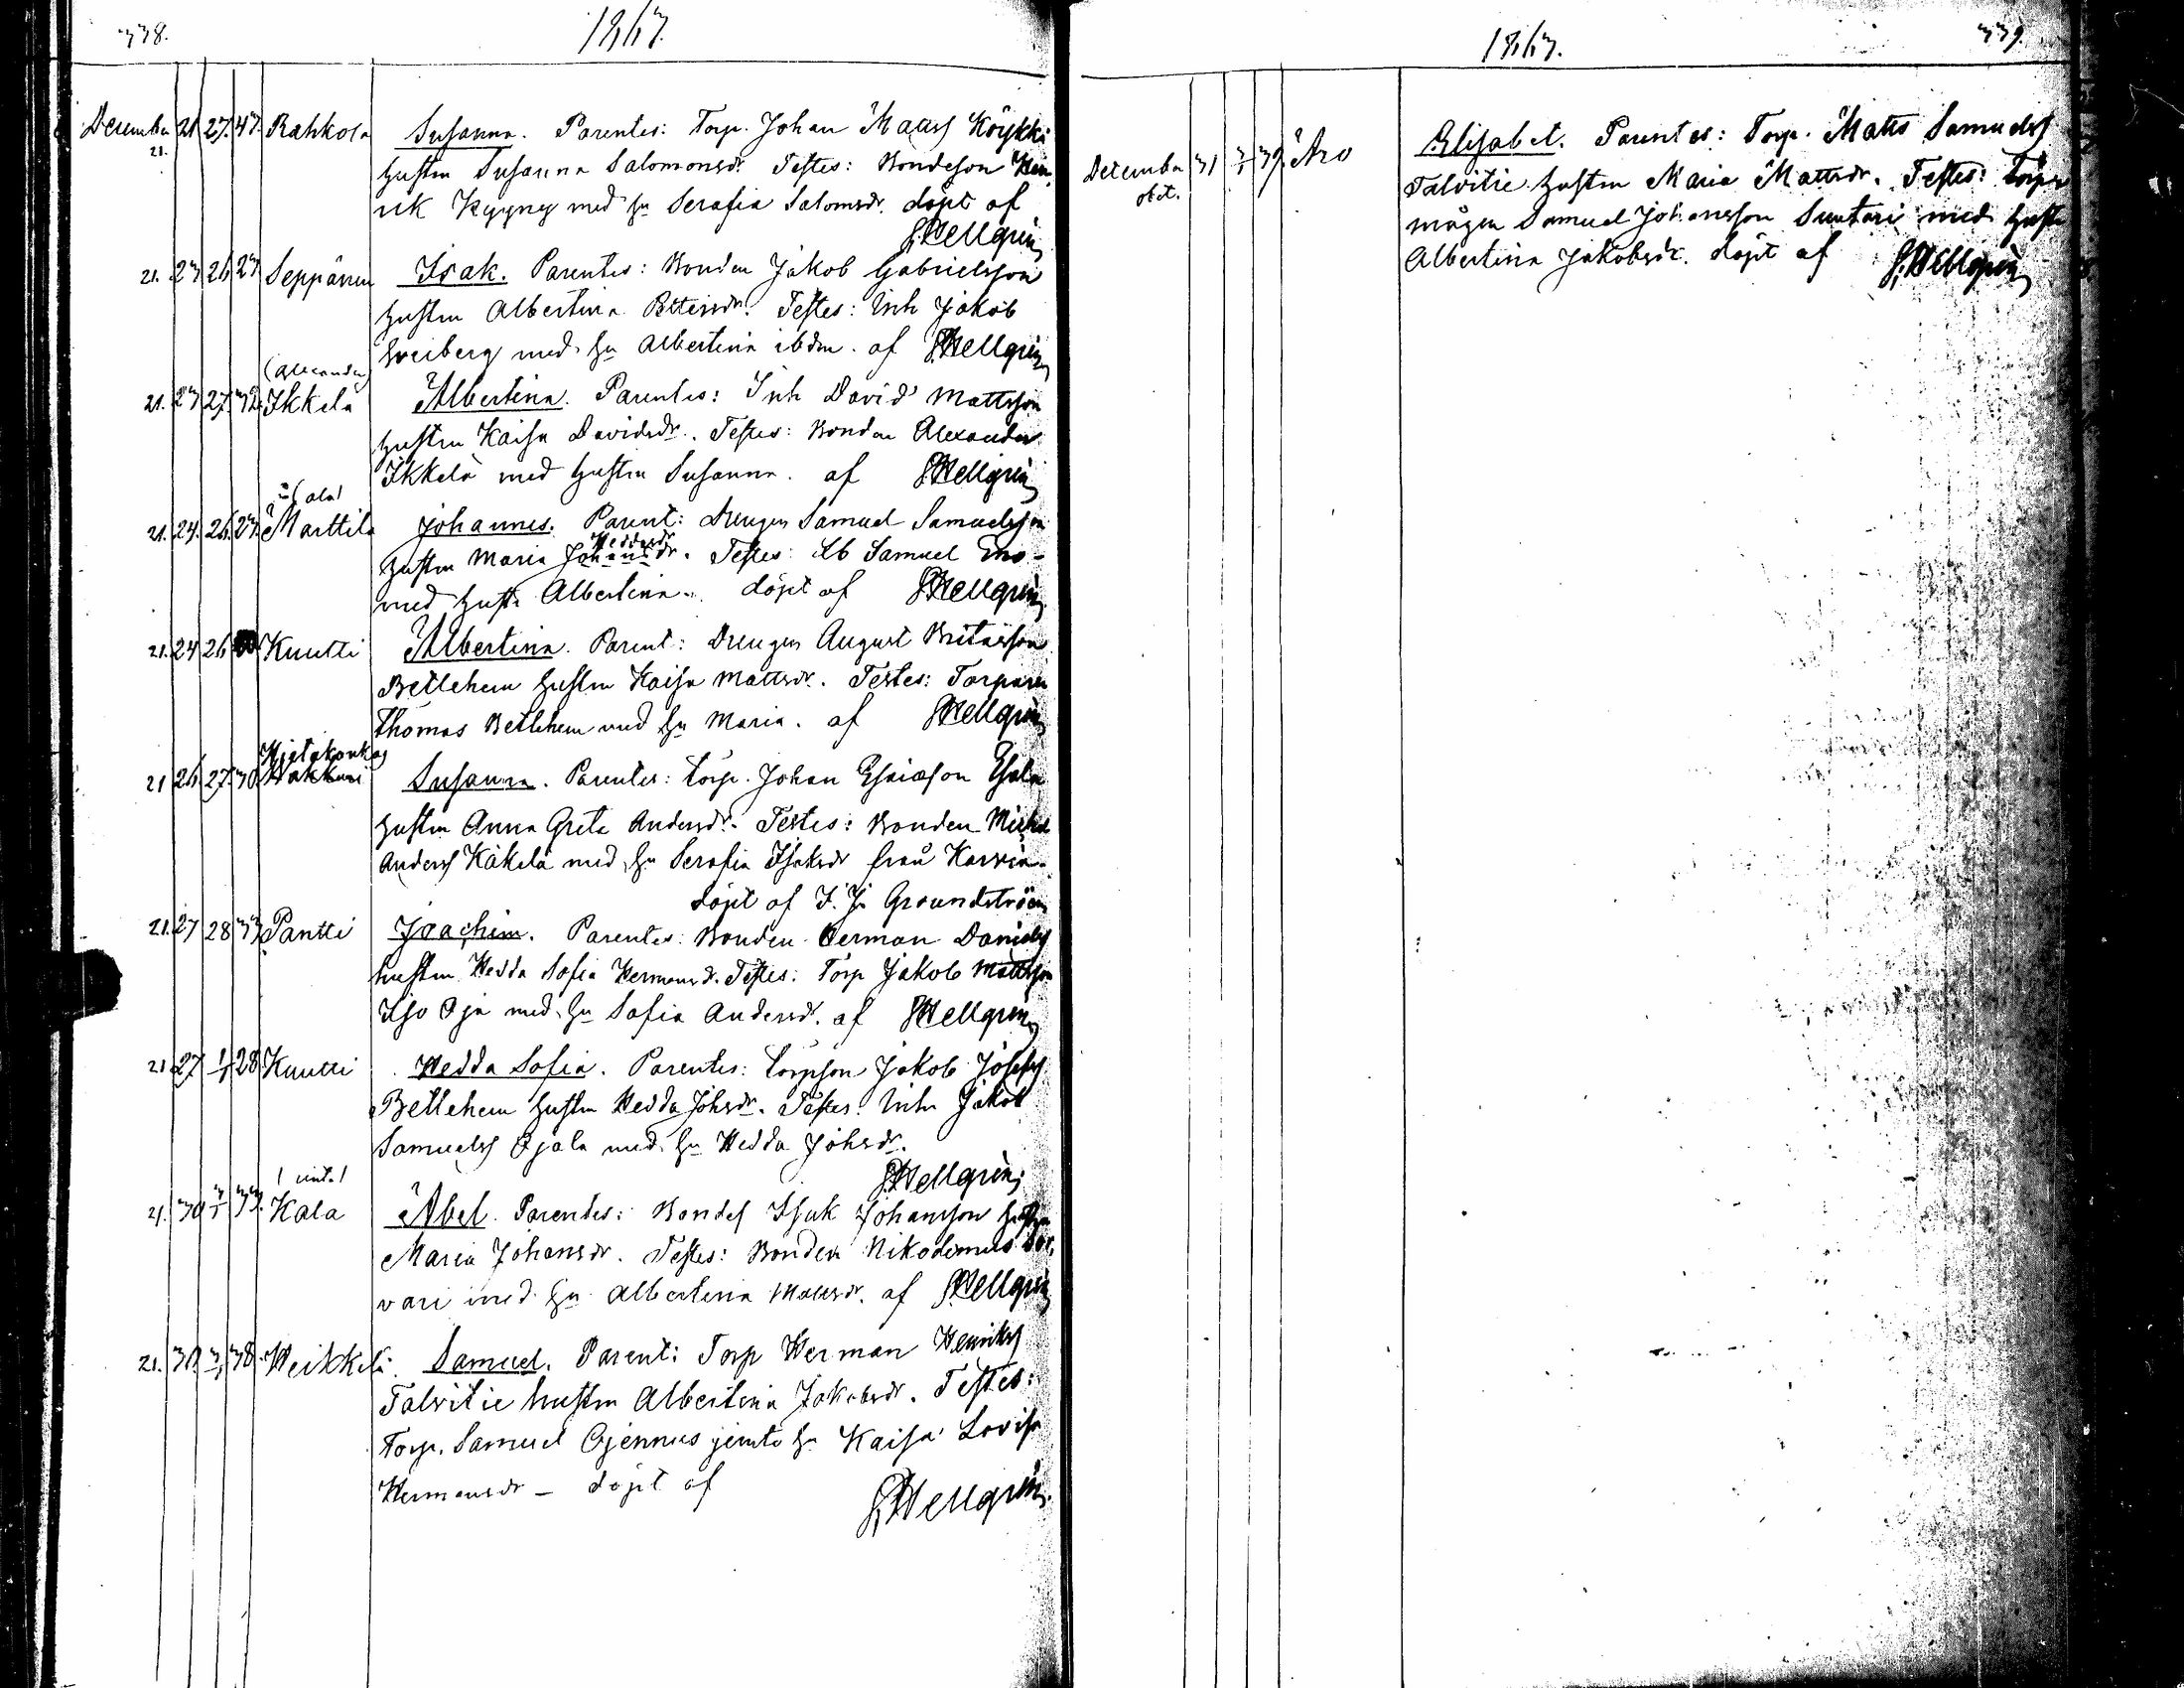 338.
1867.
December 21 27. 47. Rahkola Susanna. Parentes: Torp. Johan Matts Köykkä
21.
hustrun Susanna Salomonsdr. Testes: Bondeson Hen
rik Kyyny med hu Serafia Salomsdr. döpt af
Hellgren
21. 23 26 27 Seppänen Isak. Parentes: Bonden Jakob Gabrielsson
hustrun Albertina Pettersdr. Testes: Inh Jakob
med hu Albertina ibdm. af Hellgren
(Alexander)
21. 23 27 32 Ikkelä Albertina. Parentes: Inh David Mattsson
hustrun Kaisa Davidsdr. Testes: Bonden Alexander
Ikkelä med hustrun Susanna. af Hellgren
(ala)
21. 24. 26. 27. Marttila Johannes. Parent: Drengen Samuel Samuelsson
Heddasdr
hustrun Maria Johansdr. Testes: Samuel
med hustr Albertina. döpt af Hellgren
21. 24 26 Knutti Albertina. Parent: Drengen August
Betlehem hustrun Kaisa Mattsdr. Testes: Torparen
Thomas Betlehem med hu Maria. af Hellgren
Hietakonkas
21 26 27. 30. Hakkuni Susanna. Parentes: torp. Johan Esaiasson Ekola
hustrun Anna Greta Andersdr. Testes: Bonden Michel
Anders Käkelä med hu Serafia Isaksdr från Karvia.
döpt af F. J. Groundström
21. 27 28 33 Pantti Joachim. Parentes: Bonden Herman Daniels
hustrun Hedda Sofia Hermansdr. Testes: Torp Jakob Mattsson
Iso Oja med hu Sofia Andersdr. af Hellgren
21 27 1/1 28. Knutti Hedda Sofia. Parentes: torpson Jakob Josefss
Betlehem hustrun Hedda Johsdr. Testes: Inh Jakob
Samuels Ojala med hu Hedda Johsdr.
Hellgren
21. 30 3/1 33. Kala Abel. Parentes: Bondes Isak Johansson hustrun
Maria Johansdr. Testes: Bonden Nikodemus
vari med hu Albertina Mattsdr. af Hellgren
21. 30. 38. Heikkilä. Samuel. Parent: Torp Herman Henriks
Talvitie hustrun Albertina Jakobsdr. Testes:
Torp. Samuel Ojennus jemte hu Kaisa Lovisa
Hermansdr – döpt af
Hellgren
1867.
339.
December 31 3/1 39. Aro Elisabet. Parentes: Torp. Matts Samuels
Talvitie hustrun Maria Mattsdr. Testes: Torpare
mågen Samuel Johansson Suutari med hustr
Albertina Jakobsdr. döpt af Hellgren